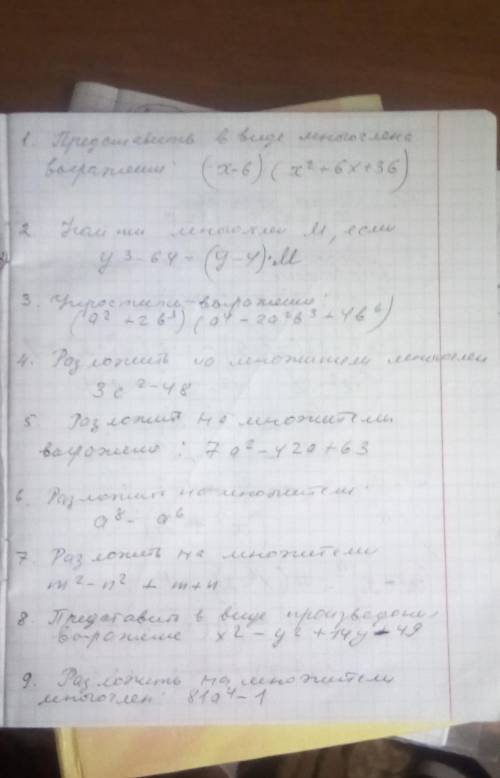 1. Представить в виде многочлена
выражение: (x-6)(x²+6x+36)
2 Найти многочлен М, если
y³-64=(y-4)·М
3. Упростить выражение:
(a²+2b³)(a⁴-2a²b³+4b⁶)
4. Разложить на множители многочлен
3c²-48
5 Разложить на множители
выражение: 7a²-42a+63
6. Разложить на множители:
a⁸- a⁶
7. Разложить на множители
m²-n² + m+n
8 Представить в виде произведения
выражение x²-y²+14y-49
9. Разложить на множители
многочлен: 81a⁴-1